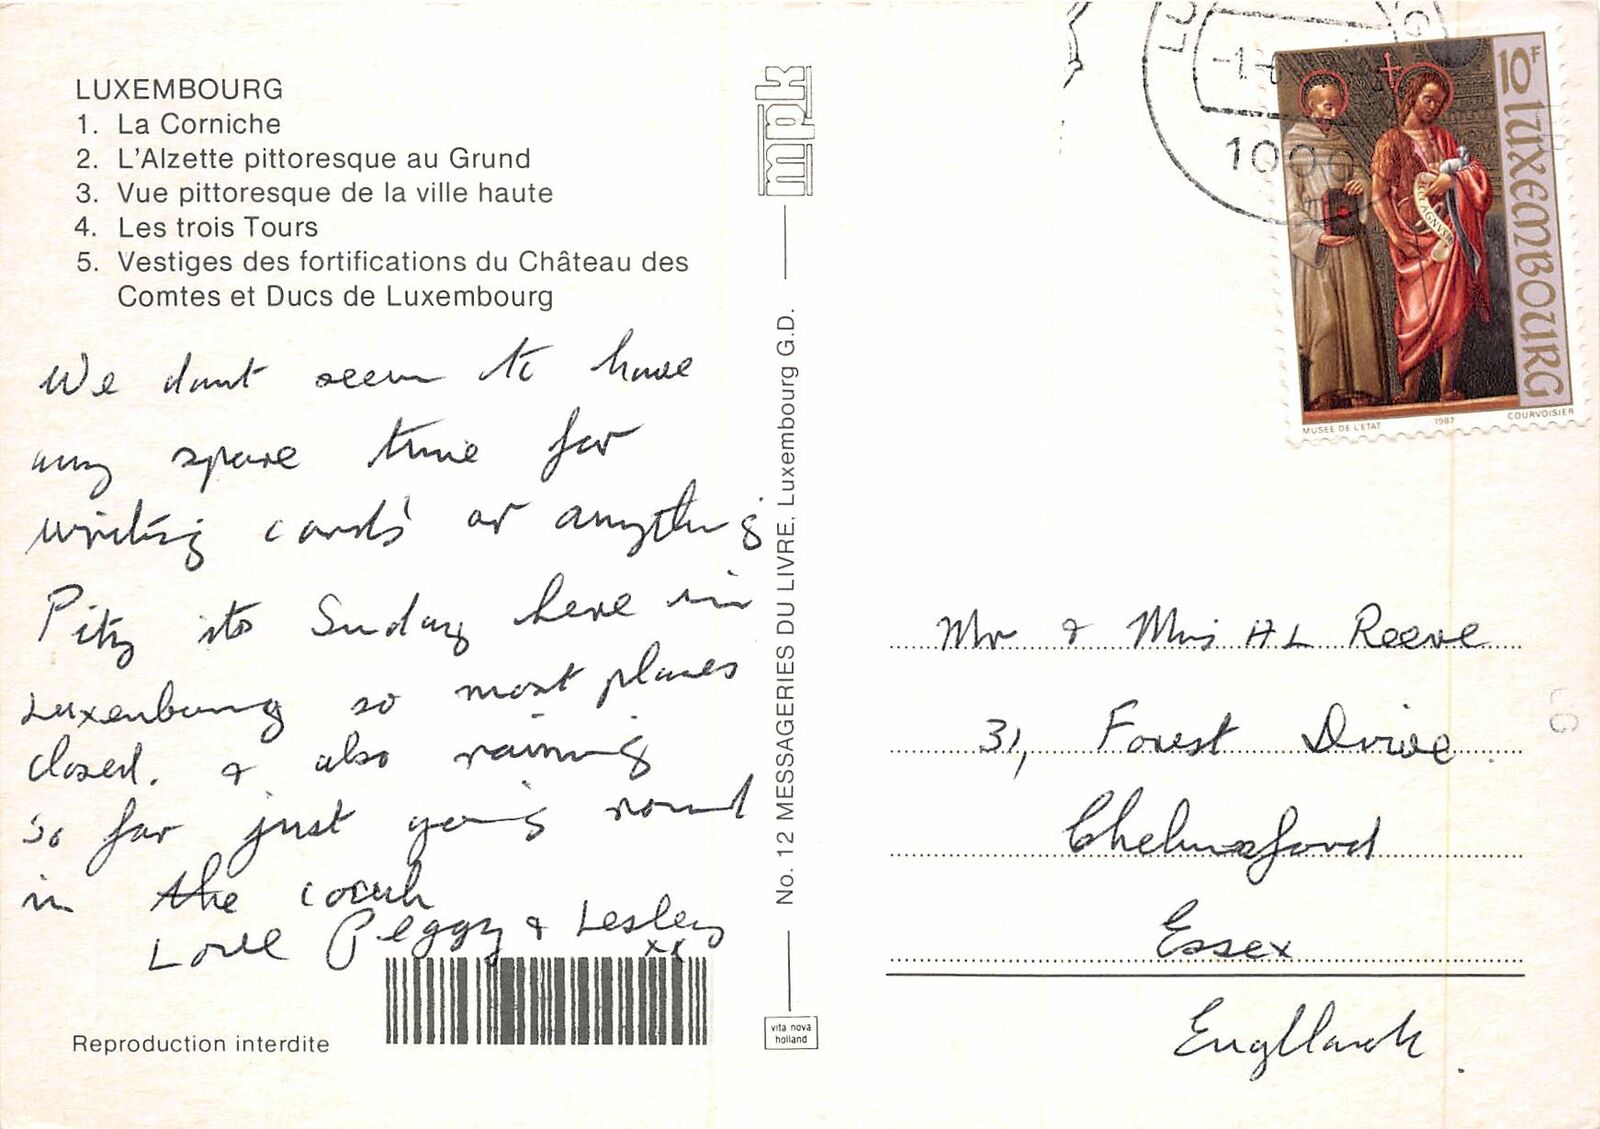 LUXEMBOURG
1. La Corniche
2. L'Alzette pittoresque au Grund
3. Vue pittoresque de la ville haute
4. Les trois Tours
5. Vestiges des fortifications du Château des
Comtes et Ducs de Luxembourg
We dont seem to have
any spare time for
writing cards or anything
Pity its Sunday here in
Luxembourg so most places
closed. & also raining
So far just going round
in the coach
Love Peggy & Lesley
xx
Reproduction interdite
mpk
No. 12 MESSAGERIES DU LIVRE. Luxembourg G.D.
vita nova
holland
1000
10F
LUXEMBOURG
AGNUS
MUSÉE DE L'ÉTAT 1987 COURVOISIER
Mr & Mrs H L Reeve
31, Forest Drive
Chelmsford
Essex
England.